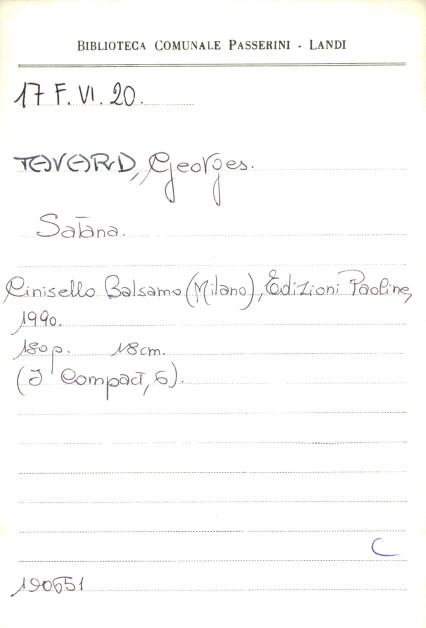 BIBLIOTECA COMUNALE PASSERINI - LANDI
17 F. VI. 20.
TAVARD, Georges.
Satana.
Cinisello Balsamo (Milano), Edizioni Paoline,
1990.
180 p. 18 cm.
(I Compact, 6).
C
190651